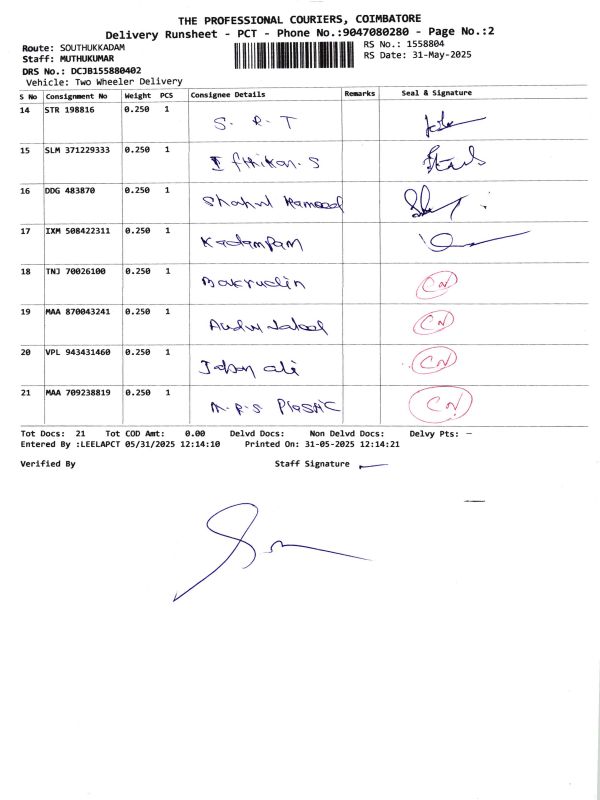 THE PROFESSIONAL COURIERS, COIMBATORE
Delivery Runsheet - PCT - Phone No.:9047080280 - Page No.:2
Route: SOUTHUKKADAM RS No.: 1558804
Staff: MUTHUKUMAR RS Date: 31-May-2025
DRS No.: DCJB155880402
Vehicle: Two Wheeler Delivery
S No Consignment No Weight PCS Consignee Details Remarks Seal & Signature
14 STR 198816 0.250 1 S. R. T
15 SLM 371229333 0.250 1 Ifthikan. S
16 DDG 483870 0.250 1 Shahul Hameed
17 IXM 508422311 0.250 1
18 TNJ 70026100 0.250 1 Bakrudin CN
19 MAA 870043241 0.250 1 CN
20 VPL 943431460 0.250 1 ali CN
21 MAA 709238819 0.250 1 Plastic CN
Tot Docs: 21 Tot COD Amt: 0.00 Delvd Docs: Non Delvd Docs: Delvy Pts: —
Entered By :LEELAPCT 05/31/2025 12:14:10 Printed On: 31-05-2025 12:14:21
Verified By Staff Signature